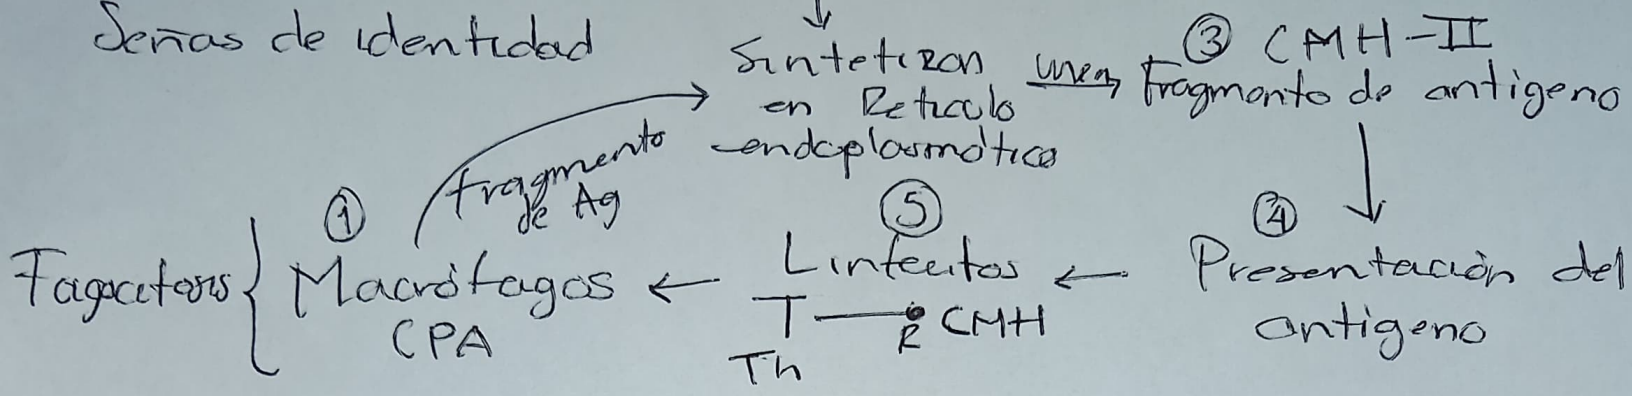 Señas de identidad
↓
Sintetizan
en Retículo
endoplasmático
unen →
③ CMH-II
fragmento de antigeno
↓
fragmento
de Ag
①
Fagocitosis { Macrófagos
CPA
←
⑤
Linfocitos
T — R CMH
Th
←
④
Presentación del
antigeno